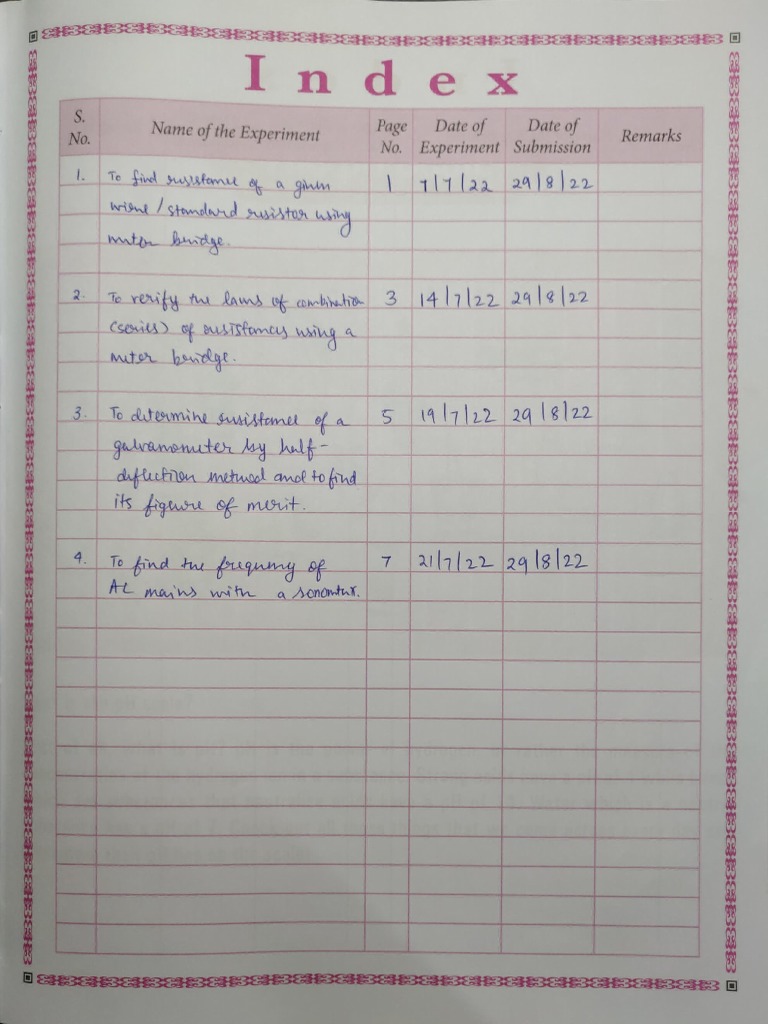 Index
S. No. Name of the Experiment Page No. Date of Experiment Date of Submission Remarks
1. To find resistance of a given 1 7/7/22 29/8/22
wire / standard resistor using
meter bridge.
2. To verify the laws of combination 3 14/7/22 29/8/22
(series) of resistances using a
meter bridge.
3. To determine resistance of a 5 19/7/22 29/8/22
galvanometer by half-
deflection method and to find
its figure of merit.
4. To find the frequency of 7 21/7/22 29/8/22
AC mains with a sonometer.